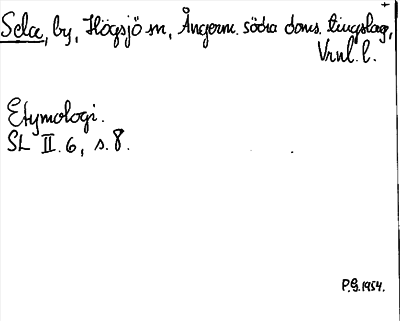 Sela, by, Högsjö sn, Ångerm. södra doms. tingslag,
Vnl. l.
Etymologi.
SL II.6, s.8.
P.G. 1954.